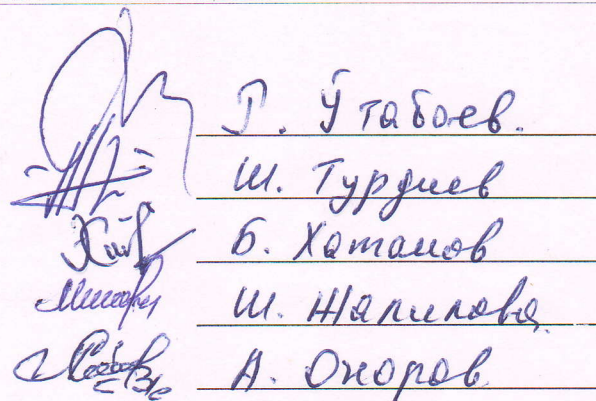 Г. Ўтабоев.
Ш. Турдиев
Б. Хатамов
Ш. Жалилова
А. Оноров